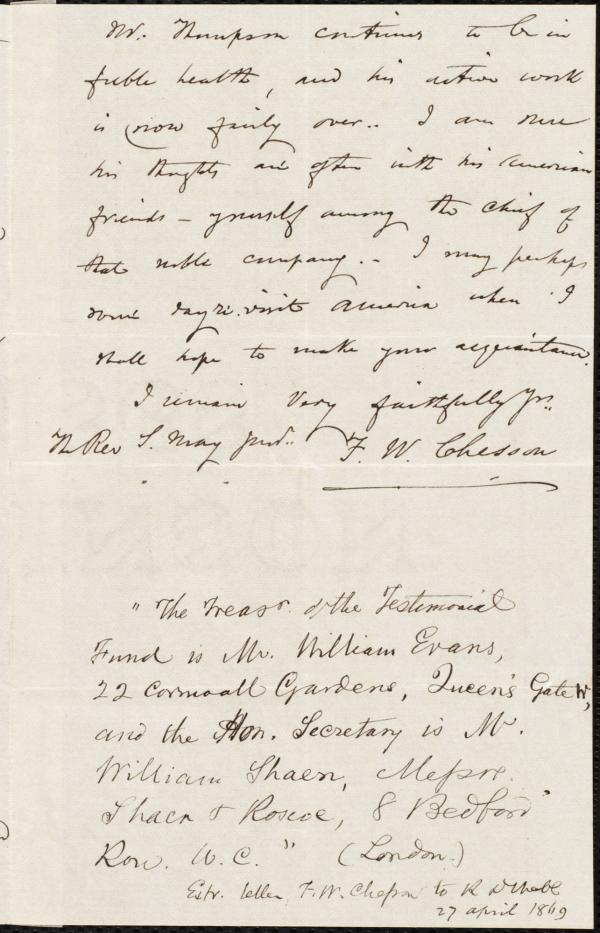 Mr. Thompson continues to be in
feeble health, and his active work
is now fairly over.. I am sure
his thoughts are often with his American
friends – yourself among the chief of
that noble company. – I may perhaps
some day re-visit America when I
shall hope to make your acquaintance.
I remain Very faithfully Yrs.
The Rev S. May Junr.. F. W. Chesson
"The Treasr. of the Testimonial
Fund is Mr. William Evans,
22 Cornwall Gardens, Queen's Gate W,
and the Hon. Secretary is Mr.
William Shaen, Messrs.
Shaen & Roscoe, 8 Bedford
Row. W. C." (London.)
Extr. letter, F. W. Chesson to R D Webb
27 April 1869